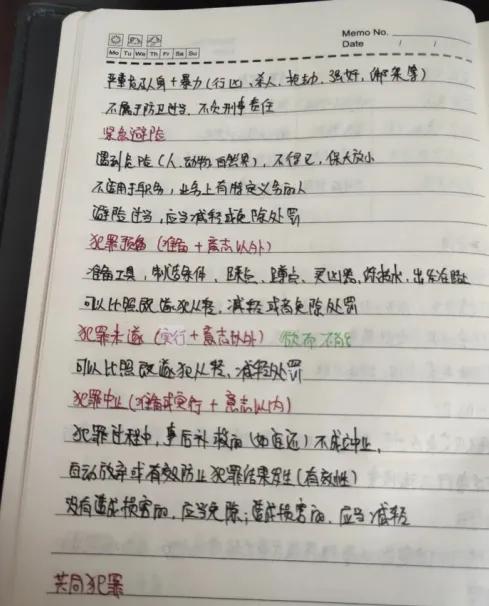 Memo No.
Mo Tu We Th Fr Sa Su
Date / /
严重危及人身+暴力(行凶、杀人、抢劫、强奸、绑架等)
不属于防卫过当,不负刑事责任
紧急避险
遇到危险(人、动物、自然界),不得已,保大放小
不适用于职务,业务上有特定义务的人
避险过当,应当减轻或免除处罚
犯罪预备(准备+意志以外)
准备工具,制造条件,踩点、蹲点、买凶器,练技术,出发在路上
可以比照既遂犯从轻,减轻或者免除处罚
犯罪未遂(实行+意志以外) 欲而不能
可以比照既遂犯从轻,减轻处罚
犯罪中止(准备或实行+意志以内)
犯罪过程中,事后补救的(如返还)不成立中止,
自动放弃或有效防止犯罪结果发生(有效性)
没有造成损害的,应当免除;造成损害的,应当减轻
共同犯罪